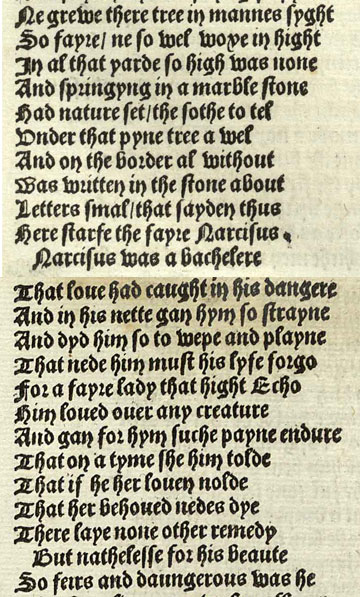 Ne grewe there tree in mannes syght
So fayre/ ne so wel woxe in hight
In al that yarde so high was none
And springyng in a marble stone
Had nature set/the sothe to tel
Vnder that pyne tree a wel
And on the border al without
Was written in the stone about
Letters smal/that sayden thus
Here starfe the fayre Narcisus.
Narcisus was a bachelere
That loue had caught in his dangere
And in his nette gan hym so strayne
And dyd him so to wepe and playne
That nede him must his lyfe forgo
For a fayre lady that hight Echo
Him loued ouer any creature
And gan for hym suche payne endure
That on a tyme she him tolde
That if he her louen nolde
That her behoued nedes dye
There laye none other remedy
But nathelesse for his beaute
So feirs and daungerous was he